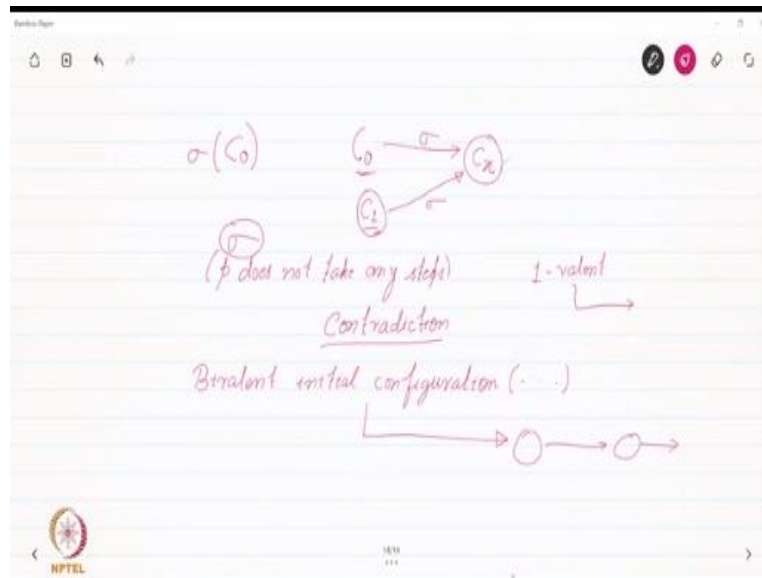 Bamboo Paper
σ(C₀) C₀ σ Cₓ
C₁ σ
σ
(p does not take any steps) 1-valent
Contradiction
Bivalent initial configuration (. . . .)
NPTEL